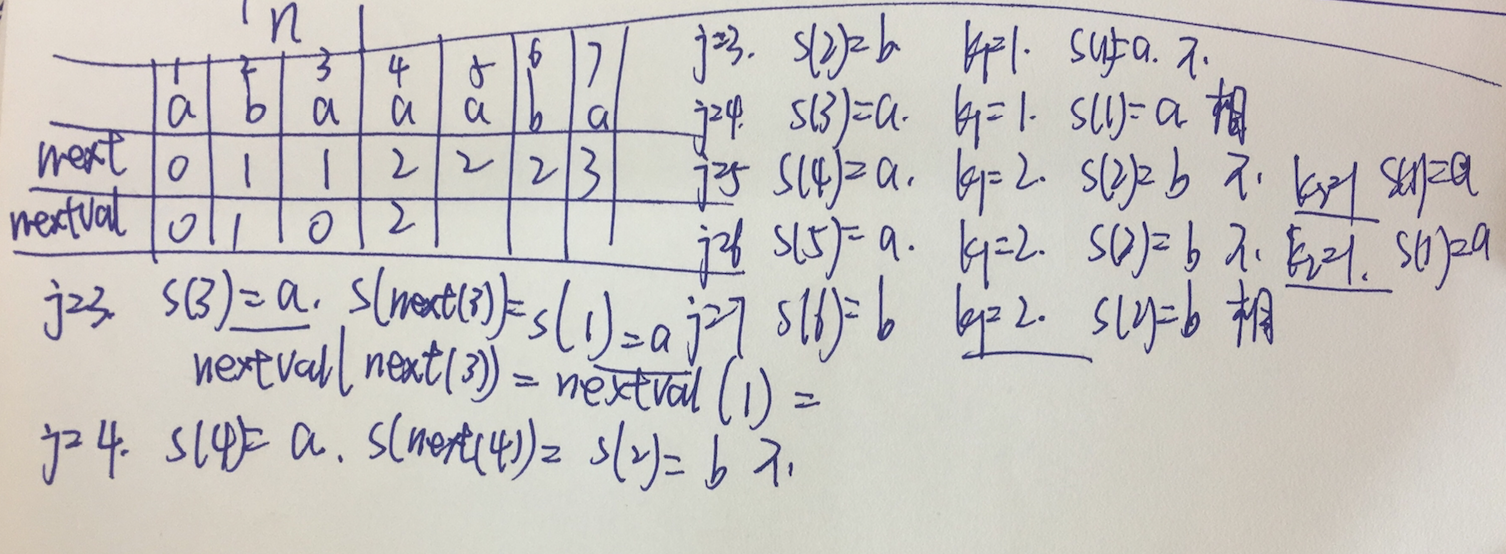 n
1 2 3 4 5 6 7
a b a a a b a
next 0 1 1 2 2 2 3
nextval 0 1 0 2
j=3. s(3)=a. s(next(3))=s(1)=a
nextval(next(3))=nextval(1)=
j=4. s(4)=a. s(next(4))=s(2)=b 不.
j=3. s(2)=b k1=1. s(1)=a. 不.
j=4. s(3)=a. k1=1. s(1)=a 相
j=5 s(4)=a. k1=2. s(2)=b 不. k2=1 s(1)=a
j=6 s(5)=a. k1=2. s(2)=b 不. k2=1. s(1)=a
j=7 s(6)=b k1=2. s(2)=b 相